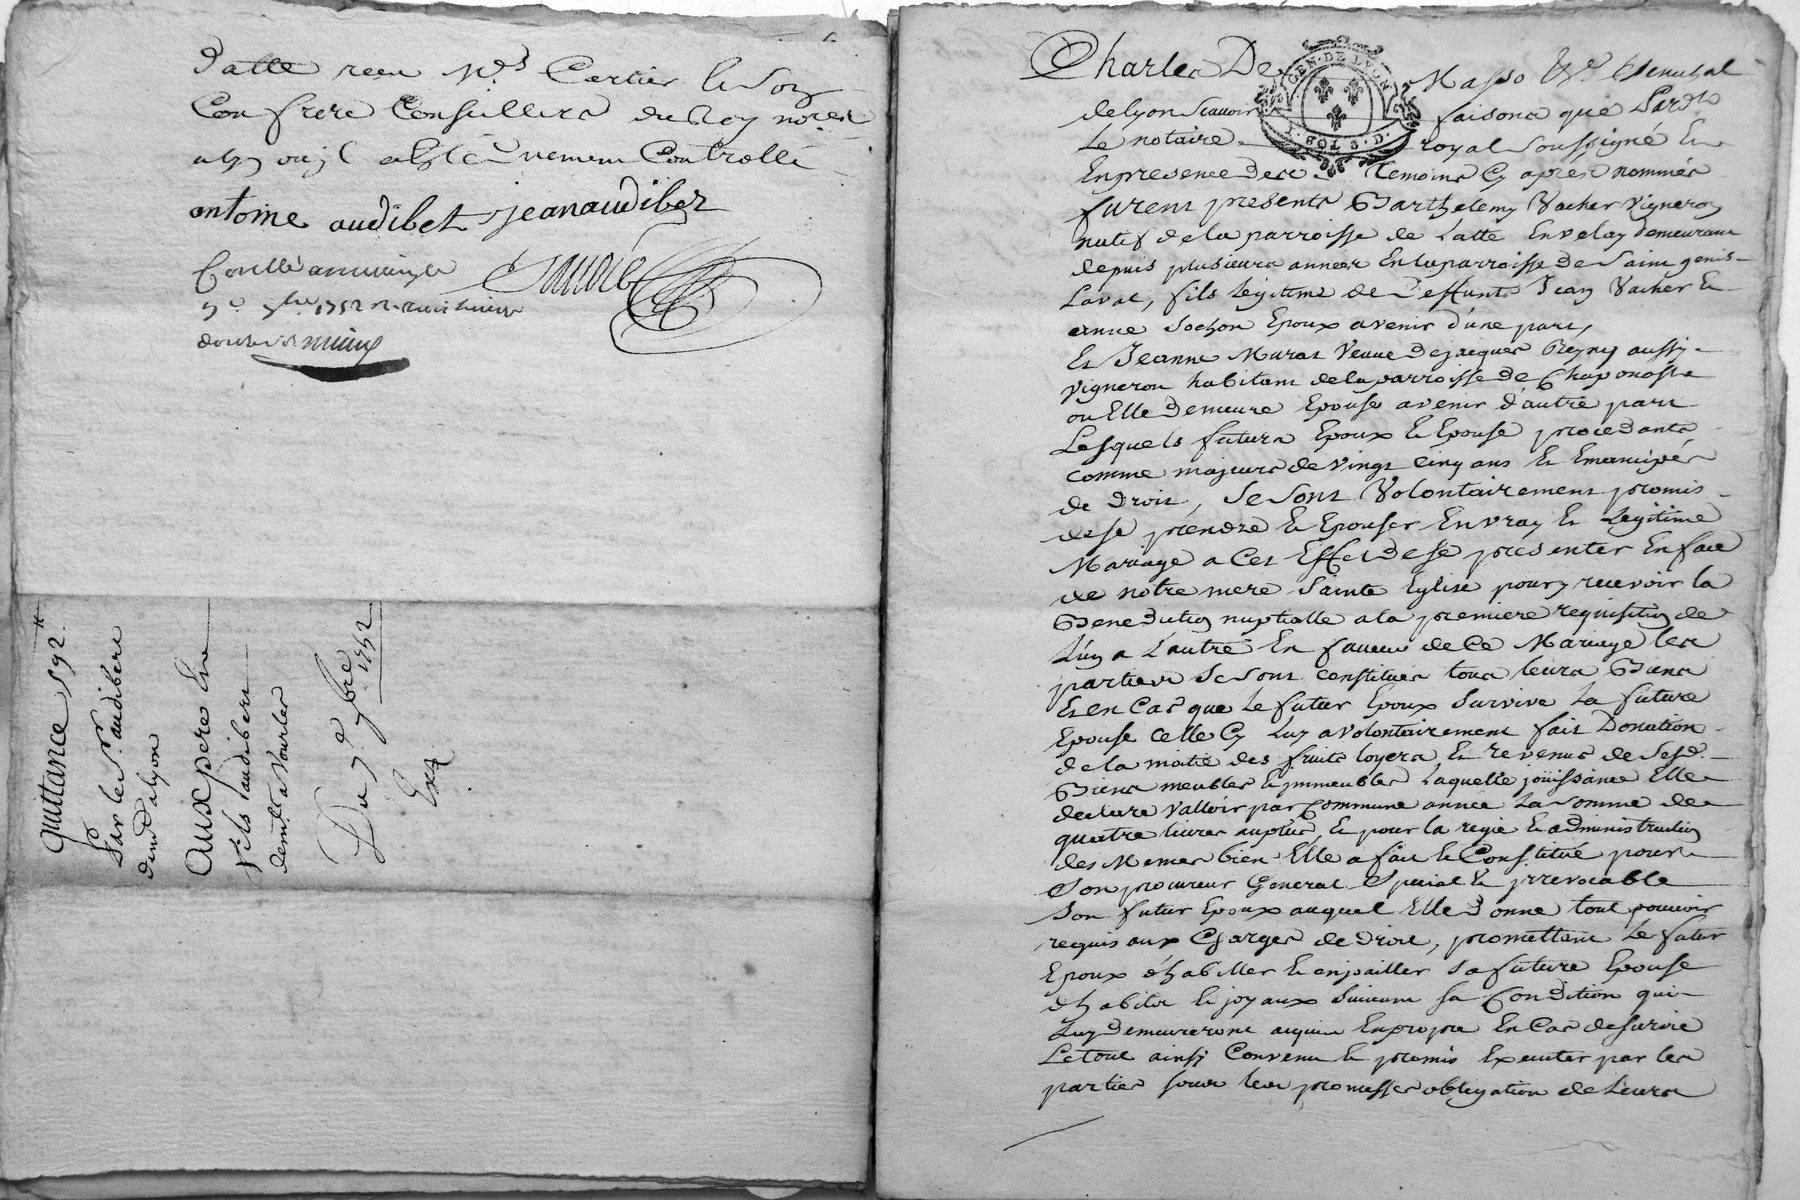 datte receu Me Cartier le soy
Confrere Conseillers du Roy notes
a lyon ou jl a été duement Controllé
antoine audibet jeanaudibez
Conllé a
7e 7bre 1752 R
douze s
quittance 592 #
Par le Sr. audibert
demt. a lyon
aux pere et
fils saudibert
demt. a Vourles
Du 7e 7bre 1752
Exa
Charles De Masso Senechal
de lyon scavoir faisons que Pardt
Le notaire royal soussigné et
En presence des Temoins Cy après nommés
furent presents Barthelemy Vacher Vigneron
natif de la parroisse de Latte En velay demeurant
depuis plusieurs années En la parroisse de Saint genis
Laval, fils Legitime de Deffunts Jean Vacher et
anne Sochon Epoux avenir d'une part,
Et Jeanne Murat Veuve De jacques Reyny aussy
vigneron habitant de la parroisse de Chaponost
ou Elle demeure Epouse avenir d'autre part
Lesquels futurs Epoux et Epouse procedants
comme majeurs de vingt cinq ans et Emancipés
de Droit, se sont Volontairement promis
de se prendre et Epouser En vray et Legitime
Mariage a Cet Effet de se presenter En face
de notre mere Sainte Eglise pour y recevoir la
Benediction nuptialle a la premiere requisition de
L'un a L'autre En faveur de Ce Mariage les
parties se sont constitués tous leurs Biens
Et en Cas que Le futur Epoux survive La future
Epouse celle Cy luy a volontairement fait Donation
de la moitié des fruits loyers et revenus de Sesd.
Biens meubles et jmmeubles Laquelle joüissance Elle
declare valloir par Commune année La somme de
quatre livres au plus, et pour la regie et administration
des Memes bien Elle a fait et Constitué pour
Son procureur General Special et jrrevocable
Son futur Epoux auquel Elle Donne tout pouvoir
requis aux Charges de Droit, promettant Le futur
Epoux d'habiller et enjoailler sa future Epouse
d'habits et joyaux suivant sa Condition qui
luy demeureront acquis En propre En Cas de survie
Le tout ainsy Convenu et promis Executer par les
parties sous leur promesses obligation de Leurs